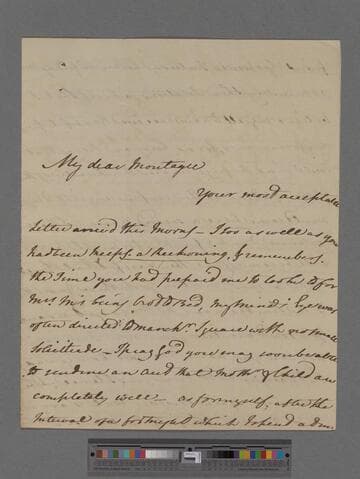 My dear Montagu
Your most acceptable
Letter arrived this Morng – I too as well as you
had been keepg. a Reckoning, & remembg.
the Time you had prepared me to look to for
Mrs. M's being brot. to Bed, my mind's Eye was
often directed to Manchr. Square with no small
solicitude – I pray God you may soon be able
to send me an acct. that Mothr. & Child are
completely well – as for myself, after the
Interval of a fortnight which I spend